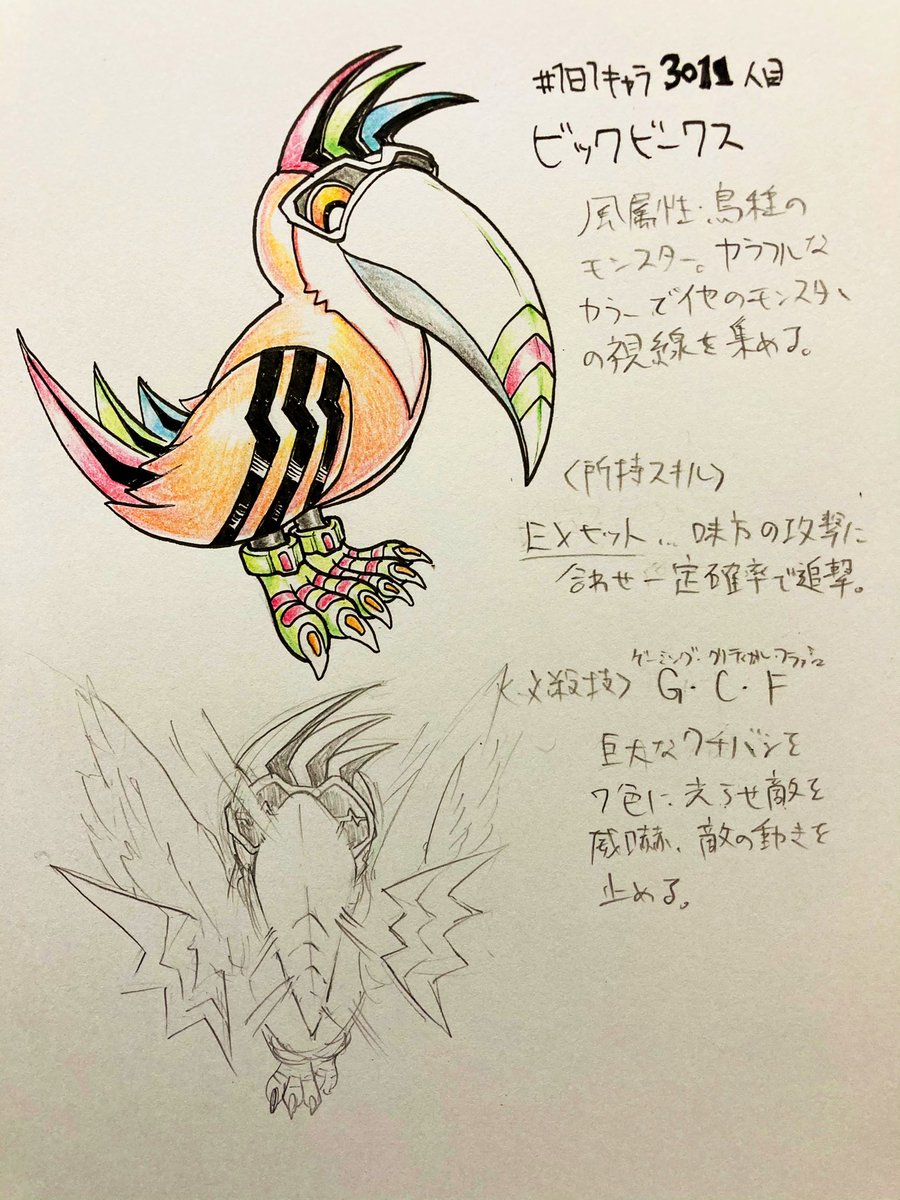 #1日1キャラ 3011人目
ビックビークス
風属性・鳥種の
モンスター。カラフルな
カラーで他のモンスター
の視線を集める。
〈所持スキル〉
EXセット… 味方の攻撃に
合わせ一定確率で追撃。
ゲーミング・クリティカル・フラッシュ
〈必殺技〉 G・C・F
巨大なクチバシを
7色に光らせ敵を
威嚇、敵の動きを
止める。